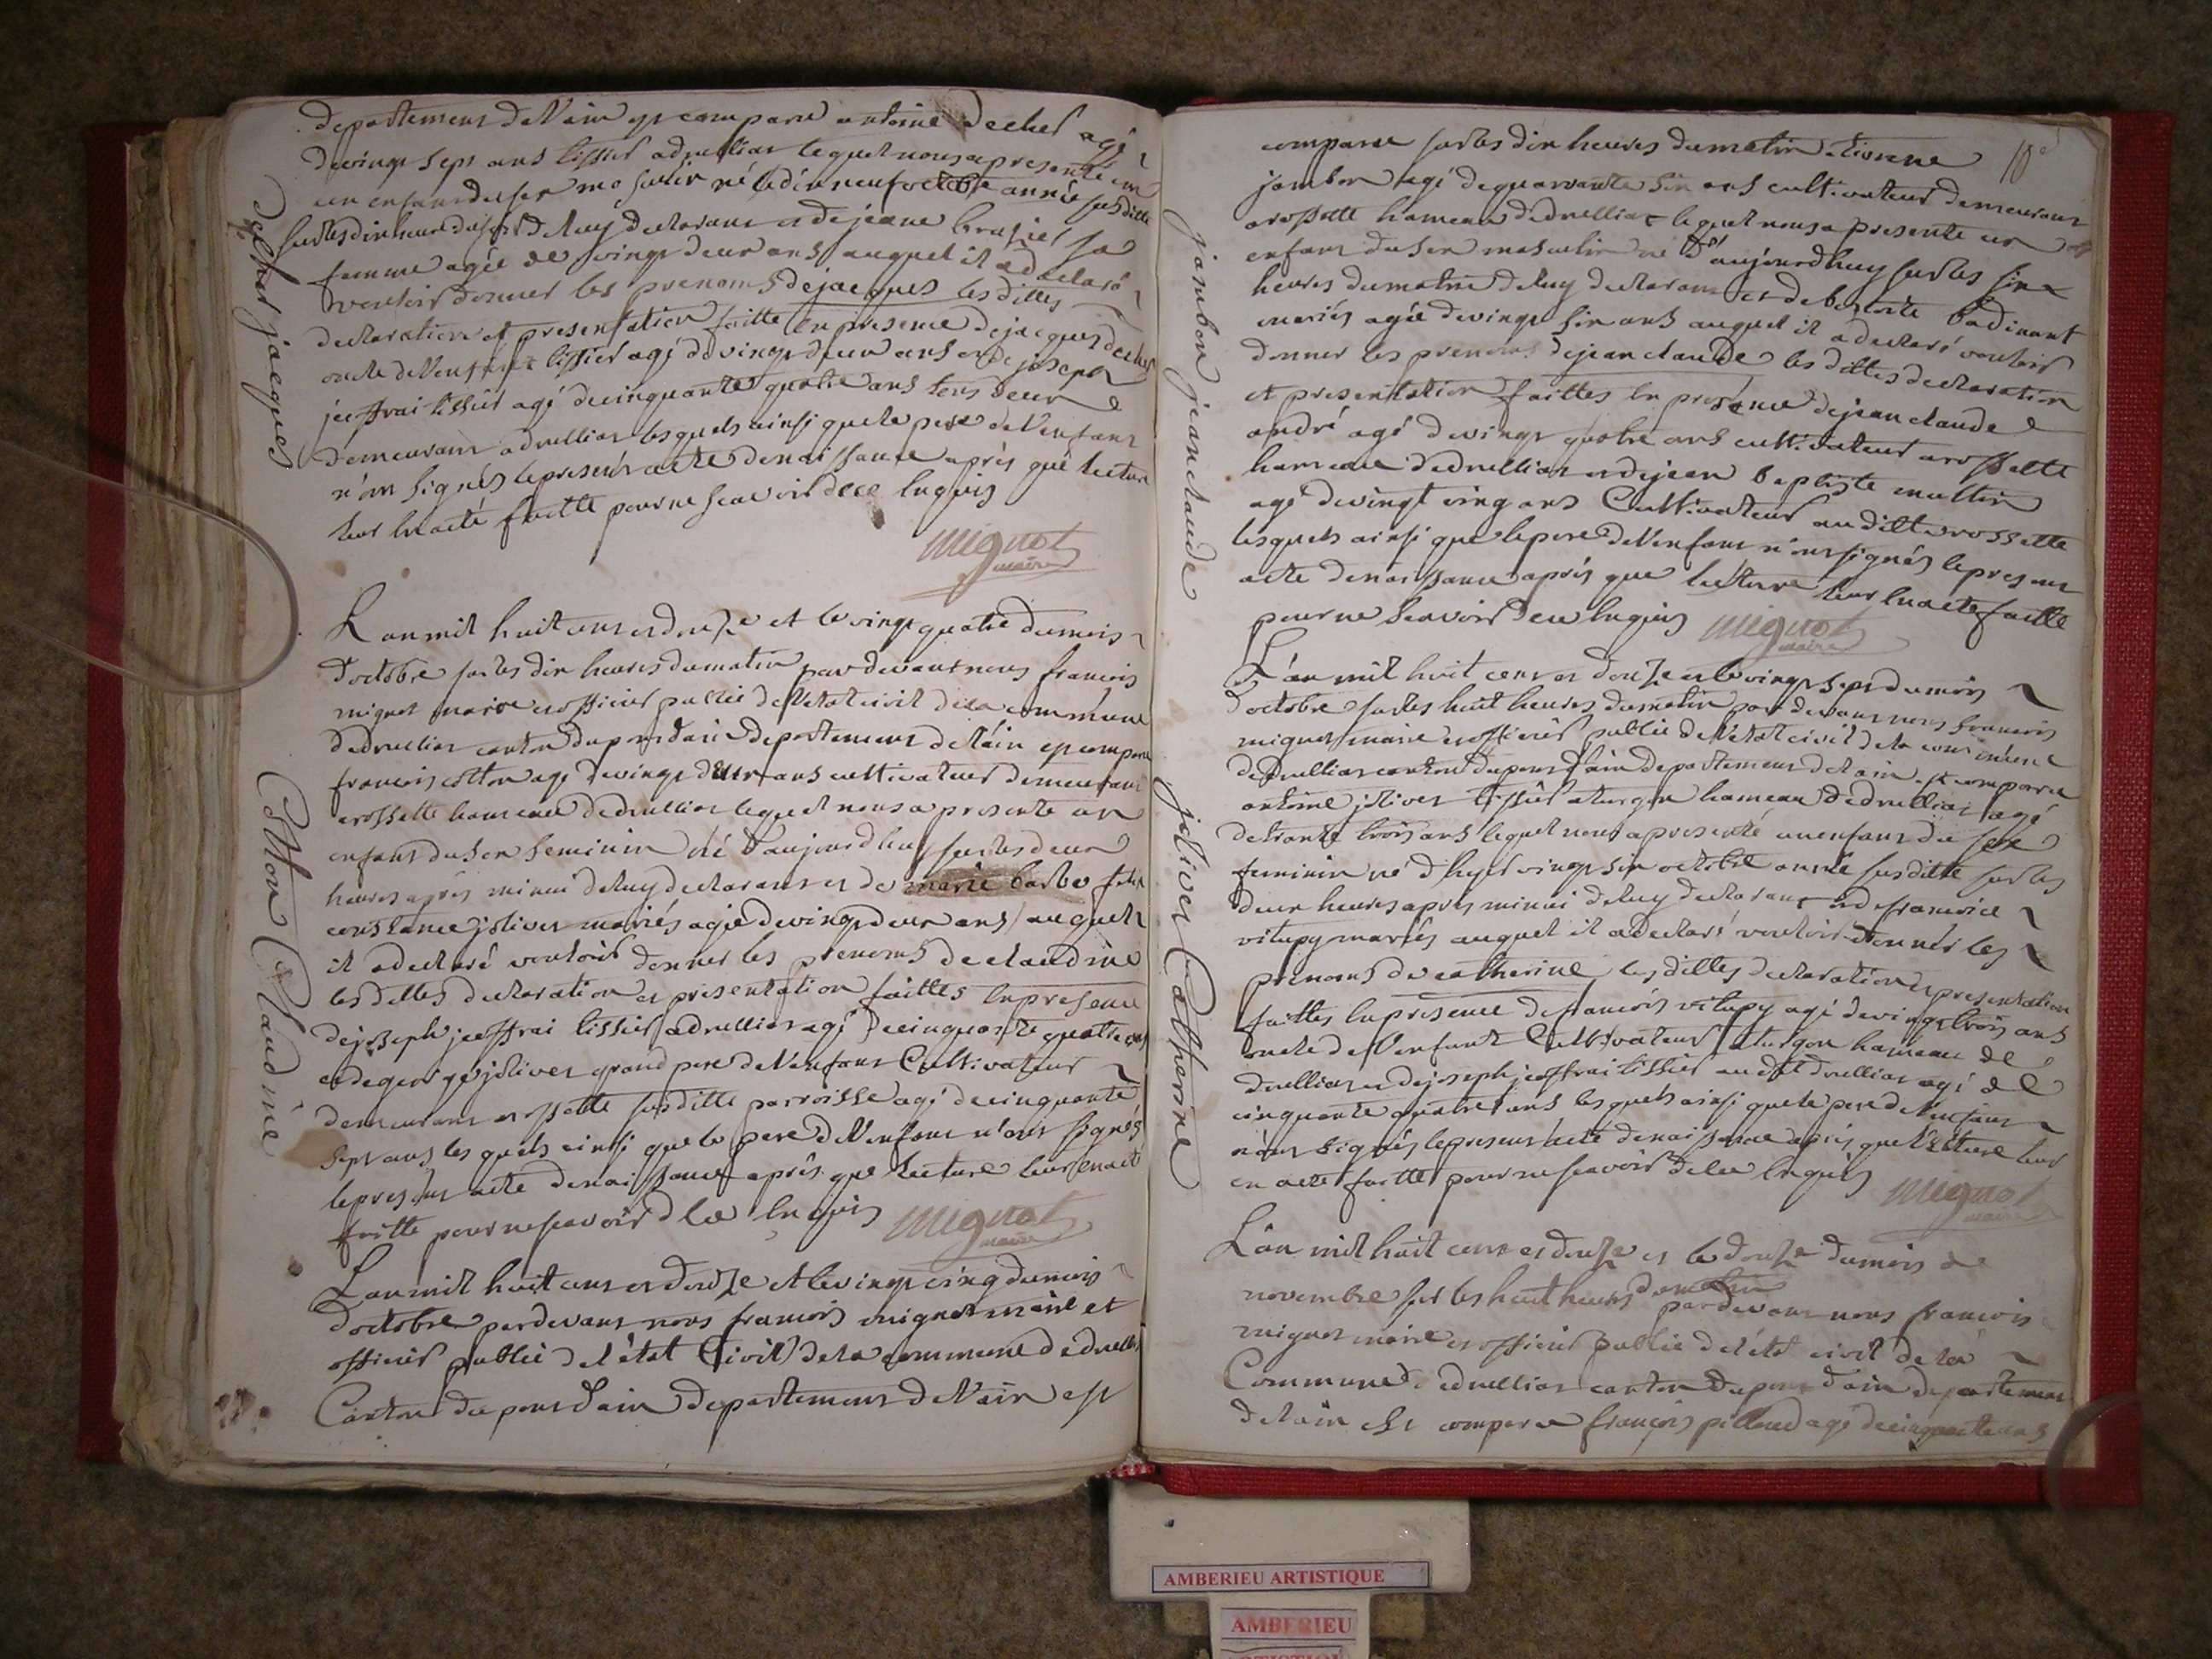 departement de l'ain est comparu antoine decher agé
de vingt sept ans tissier a druillias lequel nous a presenté un
un enfant du sex masculin né le dix neuf octobre année susditte
sur les dix heure du soir de luy declarant et de jeane brasier sa
femme agée de vingt deux ans auquel il a declaré
vouloir donner les prenoms de jacques les dittes
declaration et presentation faitte en presence de jacques decher
oncle de l'enfant tissier agé de vingt deux ans et de joseph
jeoffrai tissier agé de cinquante quatre ans tous deux
demeurant a druillias lesquels ainsi que le pere de l'enfant
n'ont signés le present acte de naissance après que lecture
leur en a eté faitte pour ne scavoir de ce enquis
mignot
maire
decher jacques
L'an mil huit cent et douze et le vingt quatre du mois
d'octobre sur les dix heures du matin par devant nous francois
mignot maire et officier public de l'etat civil de la commune
de druillias canton du pont d'ain departement de l'ain est comparu
francois cotton agé de vingt deux ans cultivateur demeurant
a rossette hameau de druillias lequel nous a presenté un
enfant du sex feminin né d'aujourd'huy sur les deux
heures après minui de luy declarant et de marie barbe
constance jolivet mariés agée de vingt deux ans auquel
il a declaré vouloir donner les prenoms de claudine
les dittes declaration et presentation faittes en presence
de joseph jeoffrai tissier a druillias agé de cinquante quatre ans
et de george jolivet grand pere de l'enfant Cultivateur
demeurant a rossette susditte parroisse agé de cinquante
sept ans les quels ainsi que le pere de l'enfant n'ont signés
le present acte de naissance après que lecture leur en a eté
faitte pour ne scavoir de ce enquis mignot
maire
Cotton Claudine
L'an mil huit cent et douze et le vingt cinq du mois
d'octobre par devant nous francois mignot maire et
officier public de l'état Civil de la commune de druillias
Canton du pont d'ain departement de l'ain est
comparu sur les dix heures du matin etienne
jambon agé de quarante six ans cultivateur demeurant
a rossette hameau de druillias lequel nous a presenté un
enfant du sex masculin né d'aujourd'huy sur les six
heures du matin de luy declarant et de benoite badinant
mariés agée de vingt six ans auquel il a declaré vouloir
donner les prenoms de jean claude les dittes declaration
et presentation faittes en presence de jean claude
andré agé de vingt quatre ans cultivateur a rossette
hameau de druillias et de jean baptiste muttin
agé de vingt cinq ans Cultivateur au ditte rossette
lesquels ainsi que le pere de l'enfant n'ont signés le present
acte de naissance après que lecture leur en a eté faitte
pour ne scavoir de ce enquis mignot
maire
jambon jean claude
L'an mil huit cent et douze et le vingt sept du mois
d'octobre sur les huit heures du matin par devant nous francois
mignot maire et officier public de l'etat civil de la commune
de druillias canton du pont d'ain departement de l'ain est comparu
antoine jolivet tissier a turgon hameau de druillias agé
de trante trois ans lequel nous a presenté un enfant du sex
feminin né d'hyer vingt six octobre année susditte sur les
deux heures apres minui de luy declarant et de francoise
vitupy mariés auquel il a declaré vouloir donner les
prenoms de catherine les dittes declaration et presentation
faittes en presence de francois vitupy agé de vingt trois ans
oncle de l'enfant Cultivateur a turgon hameau de
druillias et de joseph jeoffrai tissier au dit druillias agé de
cinquante quatre ans les quels ainsi que le pere de l'enfant
n'ont signés le present acte de naissance après que lecture leur
en a eté faitte pour ne scavoir de ce enquis
mignot
maire
jolivet Catherine
L'an mil huit cent et douze et le douze du mois de
novembre sur les huit heures du matin par devant nous francois
mignot maire et officier public de l'état civil de la
Commune de druillias canton du pont d'ain departement
de l'ain est comparu françois pilloud agé de cinquante ans
AMBERIEU ARTISTIQUE
AMBERIEU
ARTISTIQUE